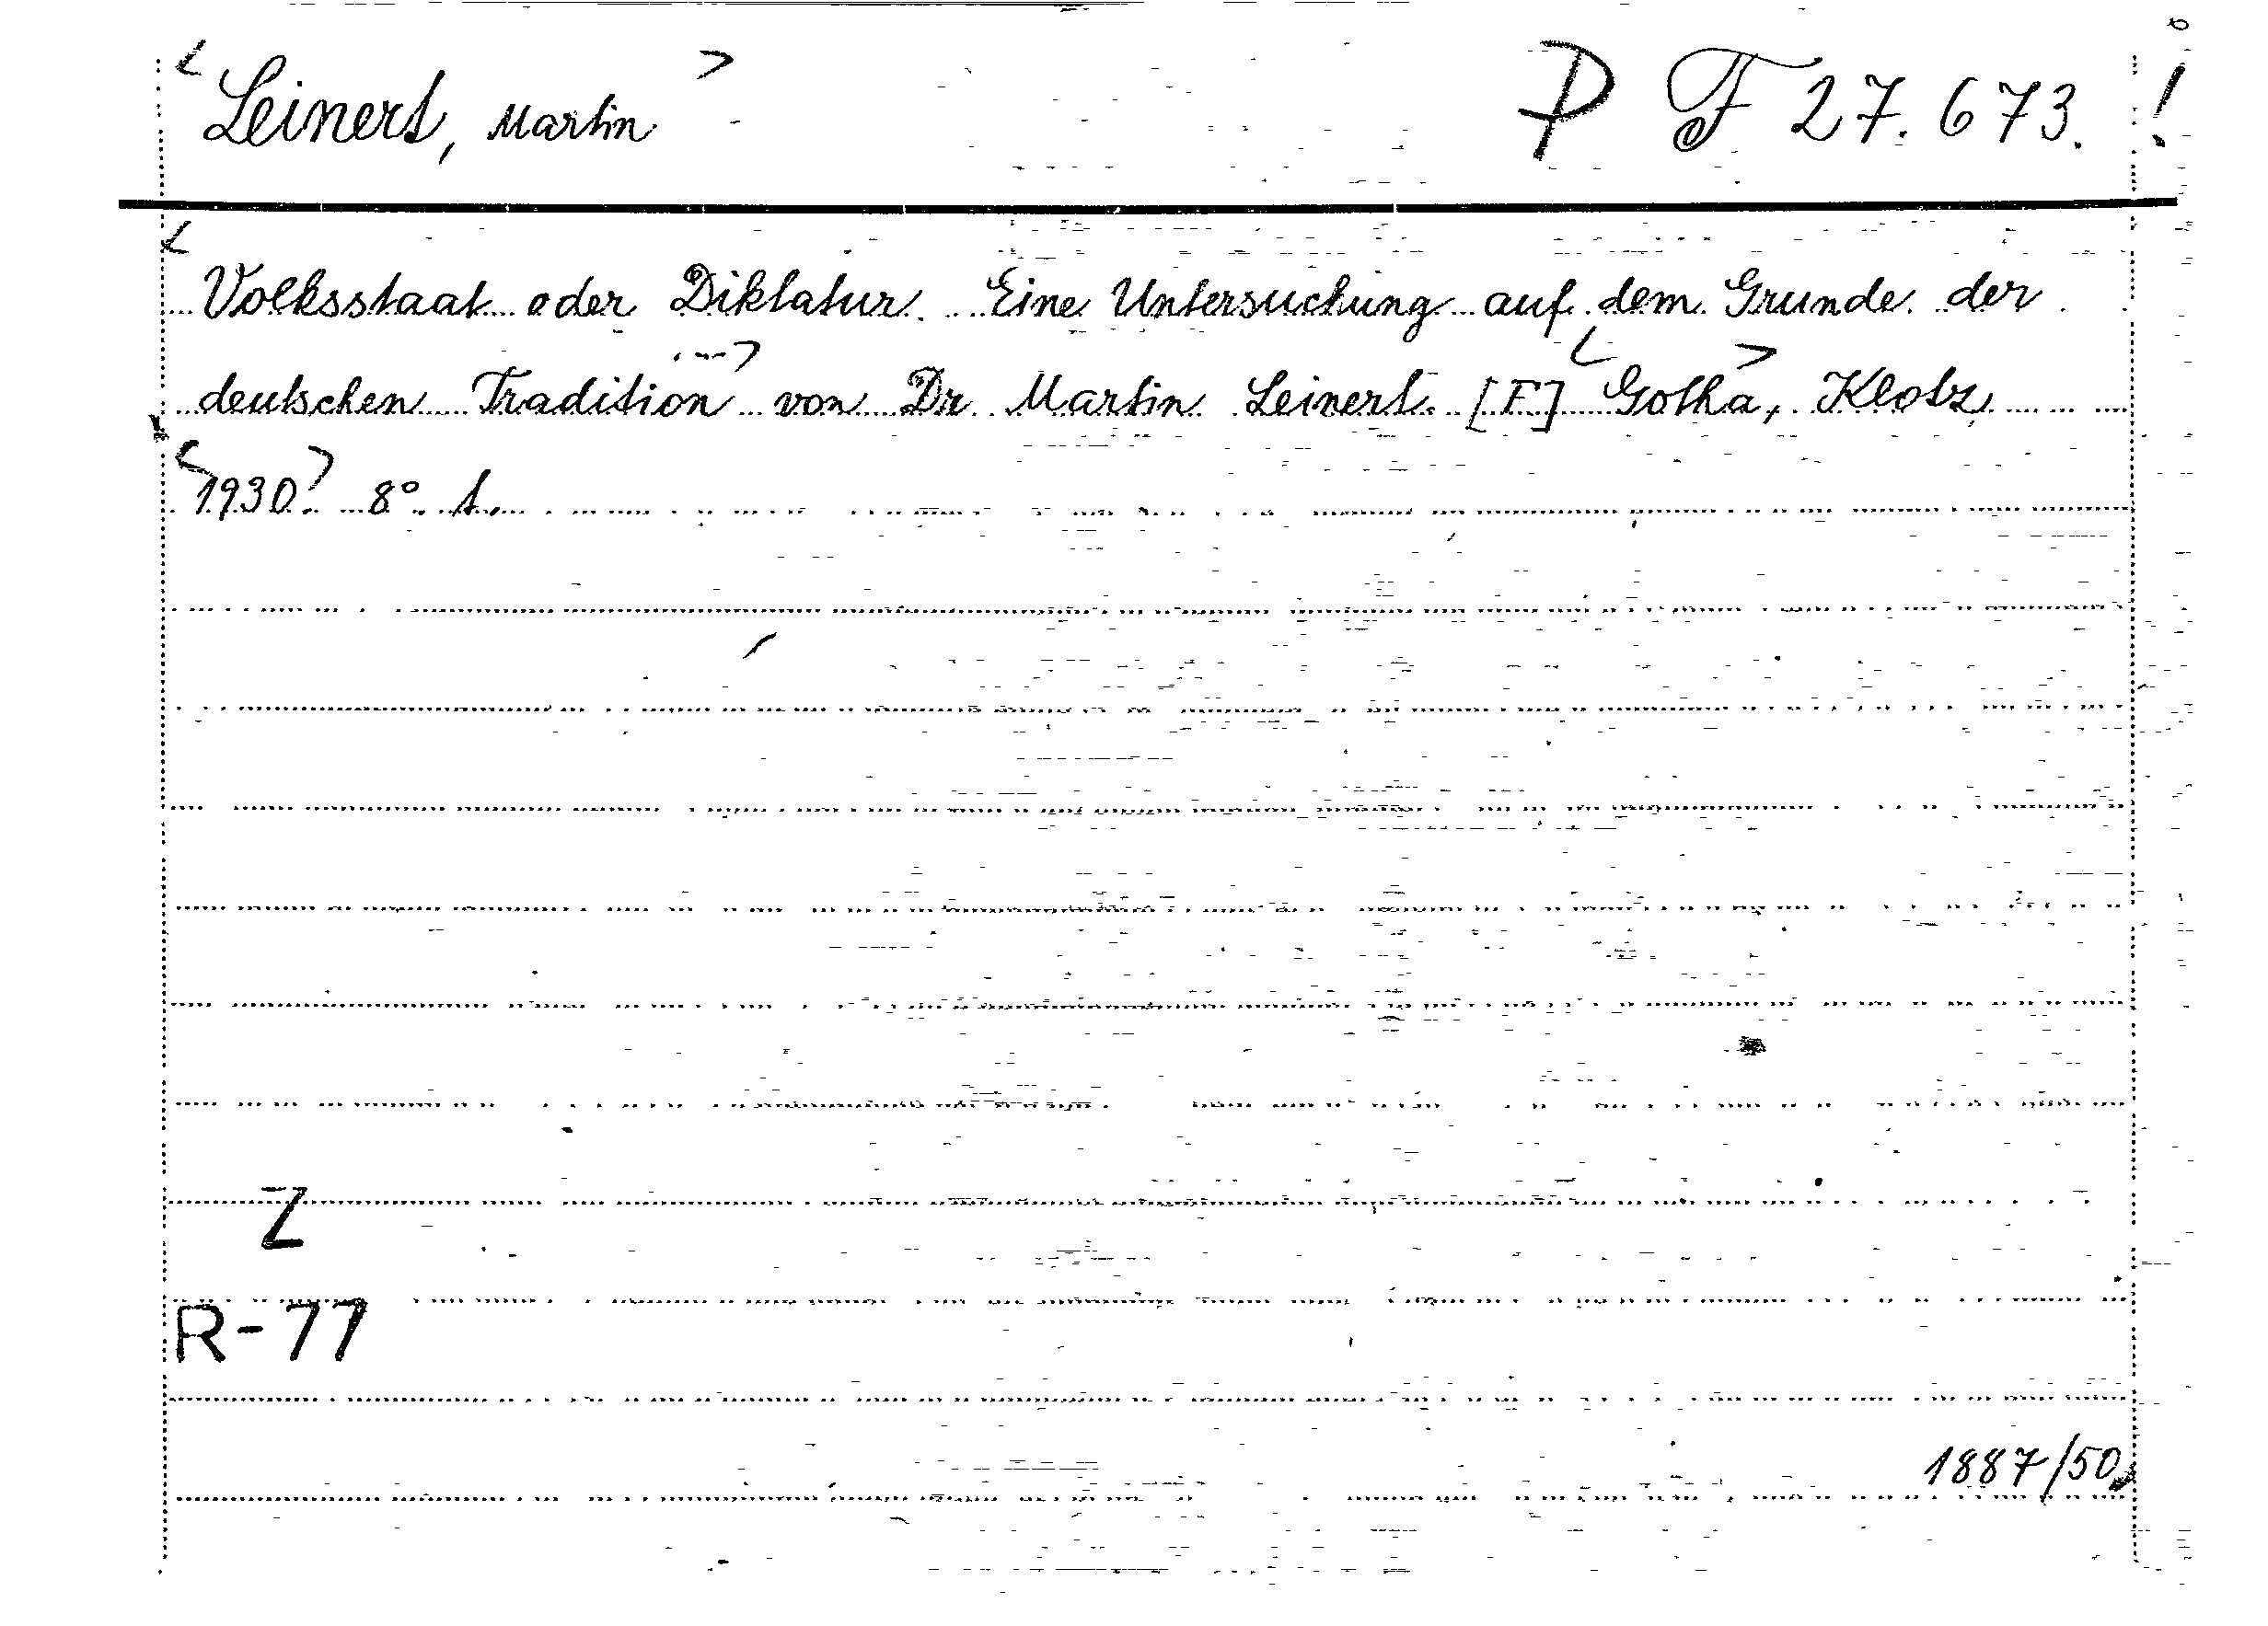 <Leinert, Martin> P F 27.673. !
<Volksstaat oder Diktatur. Eine Untersuchung auf dem Grunde der
deutschen Tradition...> von Dr Martin Leinert. [F] <Gotha>, Klotz,
<1930> 8°. 1.
Z
R-77
1887/50